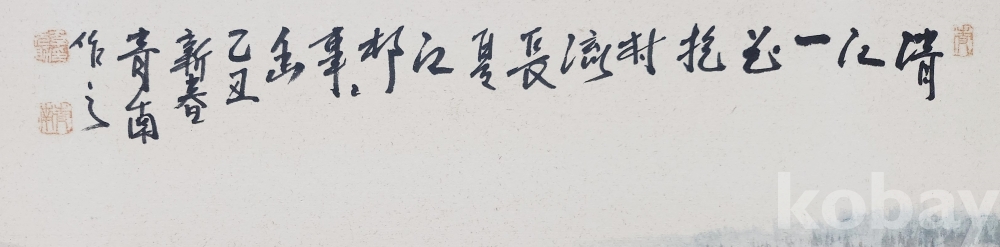 清江一曲抱村流長夏江邨事〻幽
乙丑
新春
青南
作之
kobay